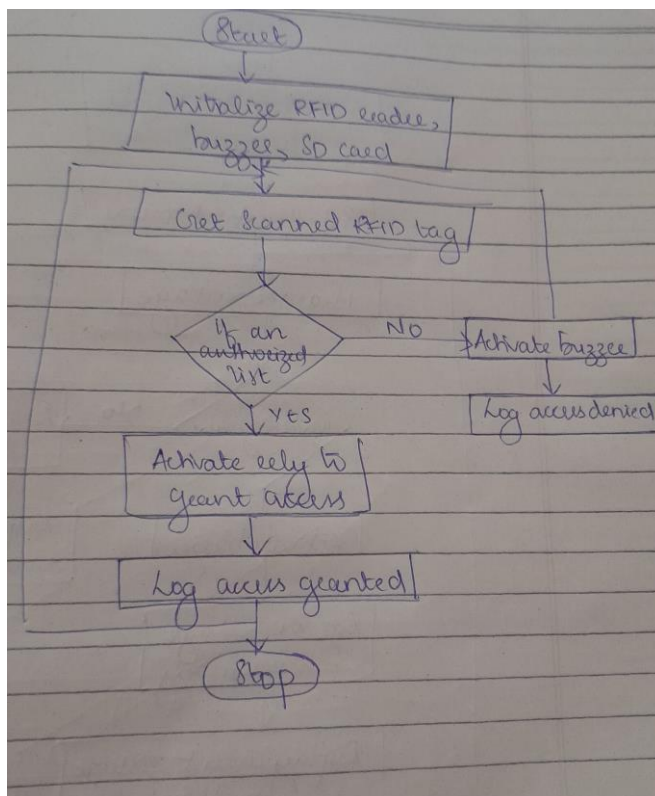 Start
Initialize RFID reader,
buzzer, SD card
Get Scanned RFID tag
If an
authorized
list
NO
Activate buzzer
Log access denied
YES
Activate rely to
grant access
Log access granted
Stop